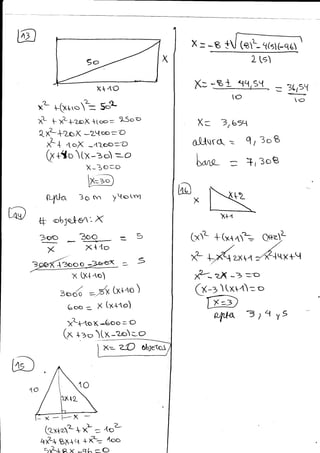 13
50
X
X+10
x² +(x+10)² = 50²
x² + x²+20x+100 = 2500
2x²+20x-2400=0
x²+10x-1200=0
(x+40)(x-30)=0
x-30=0
x=30
Rpta 30 m y 40 m
14
# objetos: X
300/x - 300/(x+10) = 5
(300x+3000-300x)/(x(x+10)) = 5
3000 = 5x(x+10)
600 = x(x+10)
x²+10x-600=0
(x+30)(x-20)=0
x=20 objetos
15
10
10
2x+2
x
(2x+2)²+x² = 10²
4x²+8x+4+x² = 100
5x²+8x-96=0
x = (-8±√((8)²-4(5)(-96)))/(2(5))
x = (-8±44,54)/10 = 36,54/10
x = 3,654
altura = 9,308
base = 7,308
16
x
x+2
x+1
(x)²+(x+1)² = (x+2)²
x²+x²+2x+1 = x²+4x+4
x²-2x-3=0
(x-3)(x+1)=0
x=3
Rpta 3, 4 y 5